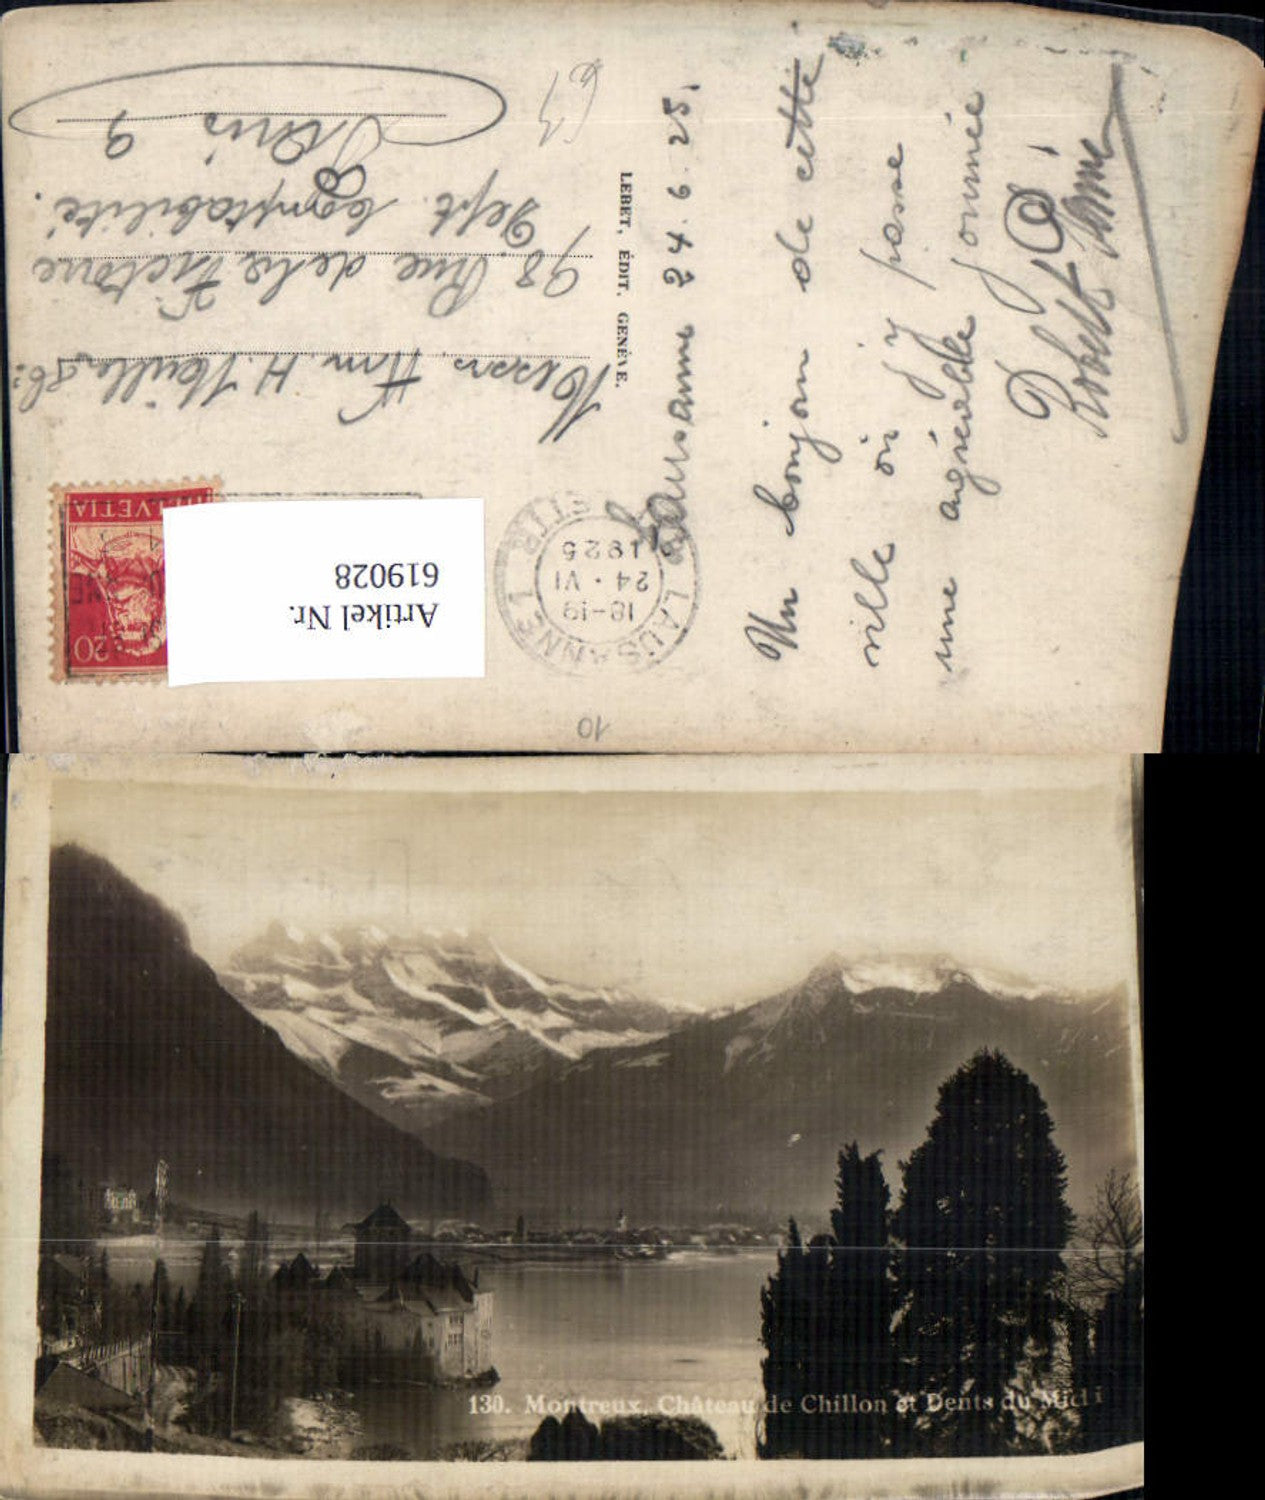 Lausanne 24.6.25.
Un bonjour de cette
ville où j'y passe
une agréable journée
Robert
LEBET, ÉDIT. GENÈVE.
Messrs. Hrn. H.
98. Rue de la Victoire
Dept. Comptabilité.
Paris 9
HELVETIA
20
LAUSANNE 1
18-19
24 · VI
1925
Artikel Nr.
619028
10
130. Montreux, Château de Chillon et Dents du Midi